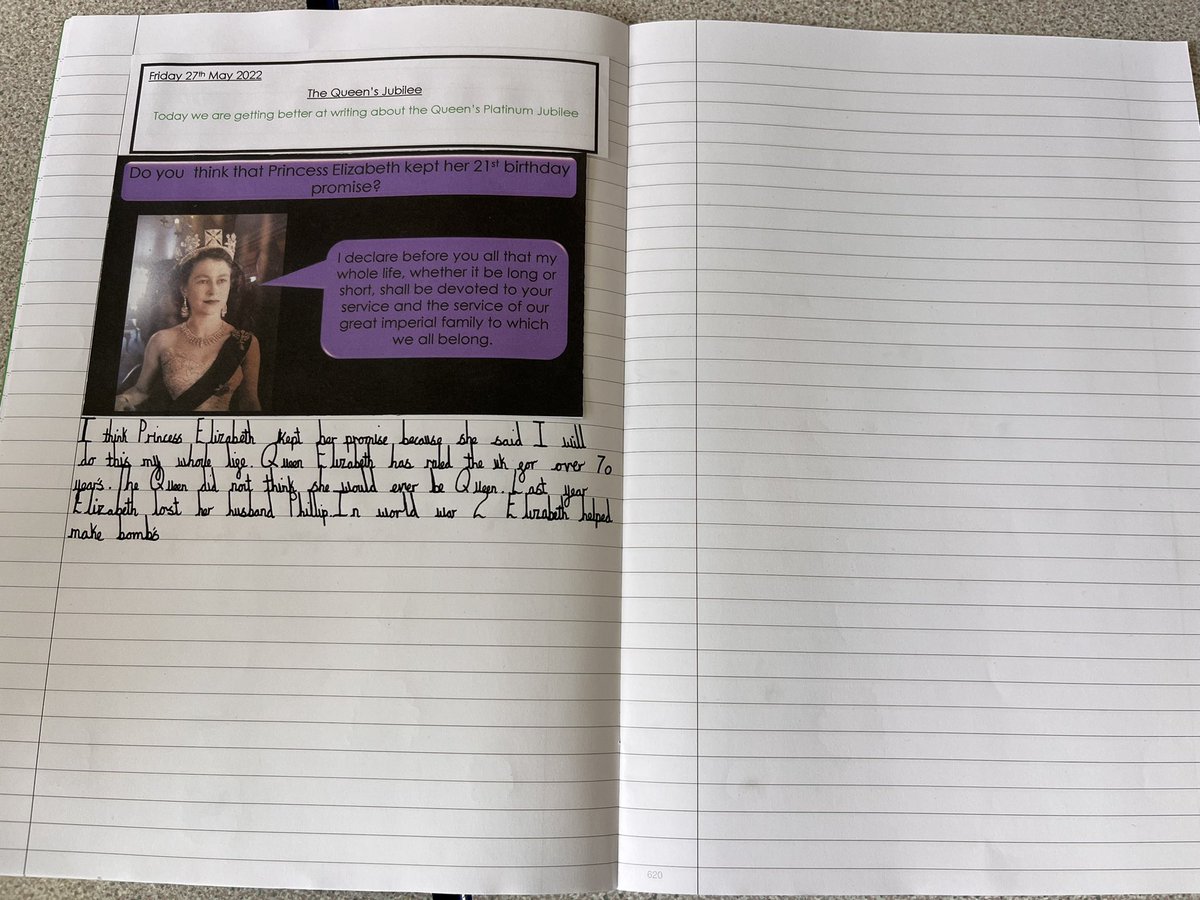 Friday 27th May 2022
The Queen's Jubilee
Today we are getting better at writing about the Queen's Platinum Jubilee
Do you think that Princess Elizabeth kept her 21st birthday
promise?
I declare before you all that my
whole life, whether it be long or
short, shall be devoted to your
service and the service of our
great imperial family to which
we all belong.
I think Princess Elizabeth kept her promise because she said I will
do this my whole life. Queen Elizabeth has ruled the uk for over 70
years. The Queen did not think she would ever be Queen. Last year
Elizabeth lost her husband Phillip. In world war 2 Elizabeth helped
make bombs
620